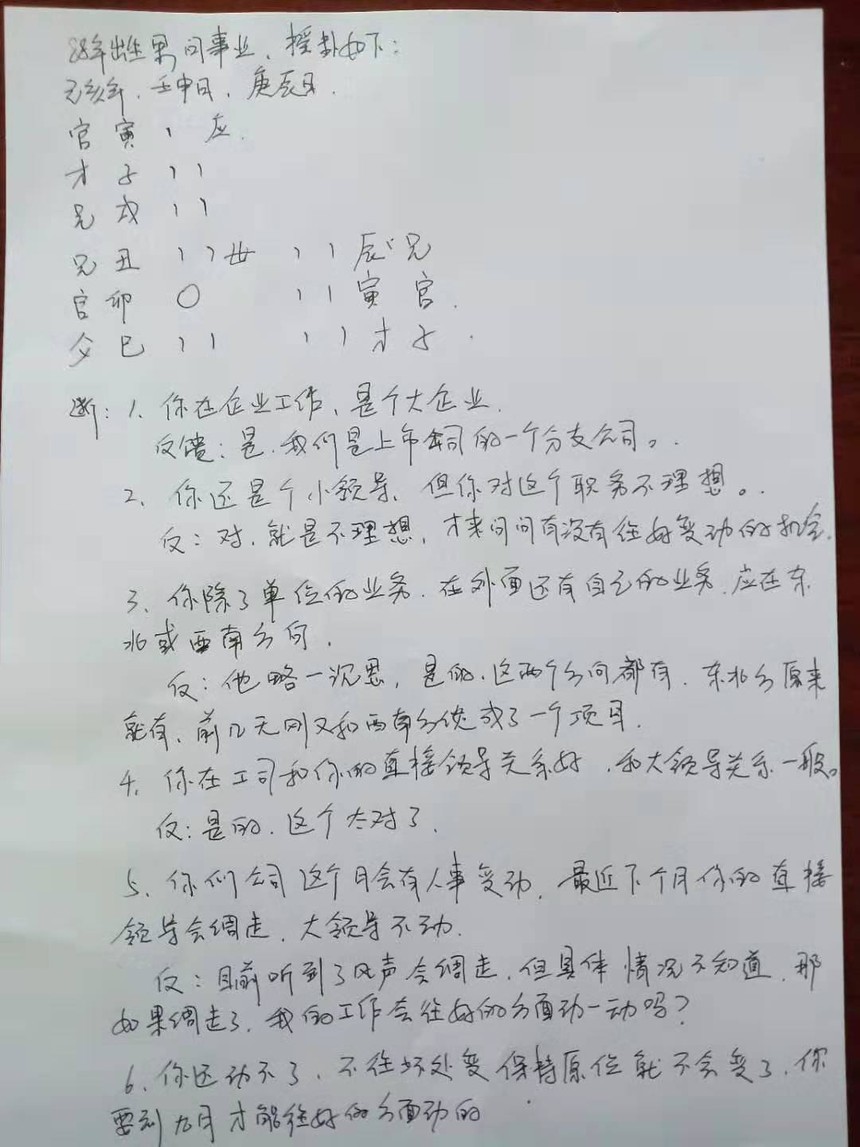 88年出生男问事业，摇卦如下：
己亥年，壬申月，庚辰日．
官 寅 、 应．
才 子 、、
兄 戌 、、
兄 丑 、、世 、、辰 兄
官 卯 〇 、、寅 官．
父 巳 、、 、、才 子．
断：1、你在企业工作，是个大企业．
反馈：是，我们是上市公司的一个分支公司。．
2、你还是个小领导，但你对这个职务不理想。．
反：对，就是不理想，才来问问有没有往好变动的机会．
3、你除了单位的业务，在外面还有自己的业务，应在东
北或西南方向．
反：他略一沉思，是的，这两个方向都有，东北方原来
就有，前几天刚又和西南方谈成了一个项目．
4、你在工司和你的直接领导关系好，和大领导关系一般。
反：是的，这个太对了．
5、你们公司这个月会有人事变动，最近下个月你的直接
领导会调走，大领导不动．
反：目前听到了风声会调走，但具体情况不知道，那
如果调走了，我的工作会往好的方面动一动吗？
6、你还动不了，不往坏处变保持原位就不会变了，你
要到九月才能往好的方面动的